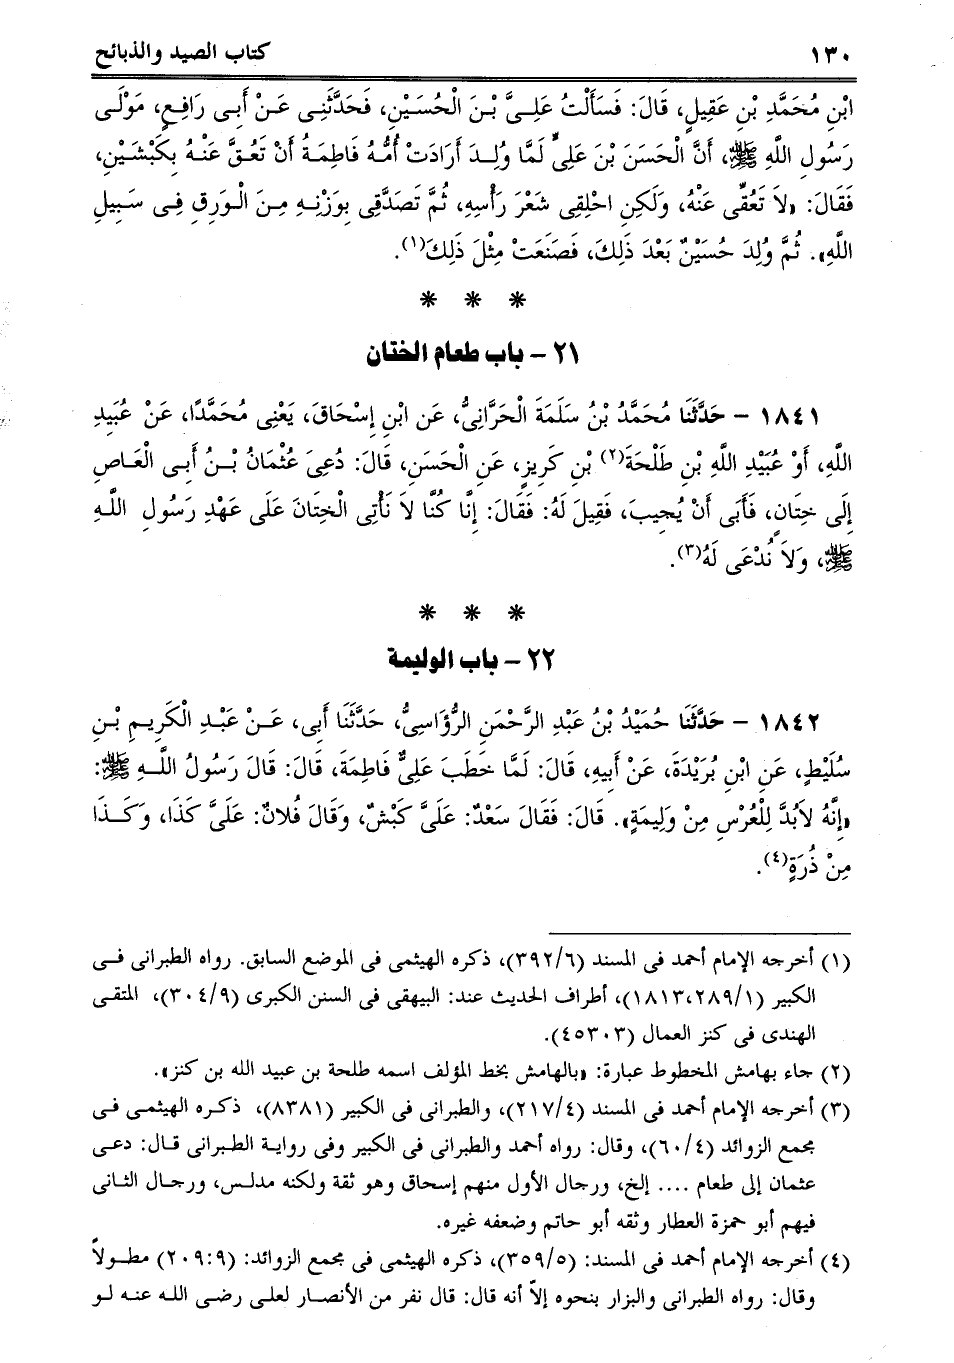 ١٣٠ كتاب الصيد والذبائح
ابْنِ مُحَمَّدِ بْنِ عَقِيلٍ، قَالَ: فَسَأَلْتُ عَلِيَّ بْنَ الْحُسَيْنِ، فَحَدَّثَنِى عَنْ أَبِى رَافِعٍ، مَوْلَى
رَسُولِ اللَّهِ ﷺ، أَنَّ الْحَسَنَ بْنَ عَلِىٍّ لَمَّا وُلِدَ أَرَادَتْ أُمُّهُ فَاطِمَةُ أَنْ تَعُقَّ عَنْهُ بِكَبْشَيْنِ،
فَقَالَ: «لاَ تَعُقِّى عَنْهُ، وَلَكِنِ احْلِقِى شَعْرَ رَأْسِهِ، ثُمَّ تَصَدَّقِى بِوَزْنِهِ مِنَ الْوَرِقِ فِى سَبِيلِ
اللَّهِ». ثُمَّ وُلِدَ حُسَيْنٌ بَعْدَ ذَلِكَ، فَصَنَعَتْ مِثْلَ ذَلِكَ(١).
* * *
٢١ - باب طعام الختان
١٨٤١ - حَدَّثَنَا مُحَمَّدُ بْنُ سَلَمَةَ الْحَرَّانِىُّ، عَنِ ابْنِ إِسْحَاقَ، يَعْنِى مُحَمَّدًا، عَنْ عُبَيْدِ
اللَّهِ، أَوْ عُبَيْدِ اللَّهِ بْنِ طَلْحَةَ(٢) بْنِ كَرِيزٍ، عَنِ الْحَسَنِ، قَالَ: دُعِىَ عُثْمَانُ بْنُ أَبِى الْعَاصِ
إِلَى خِتَانٍ، فَأَبَى أَنْ يُجِيبَ، فَقِيلَ لَهُ: فَقَالَ: إِنَّا كُنَّا لاَ نَأْتِى الْخِتَانَ عَلَى عَهْدِ رَسُولِ اللَّهِ
ﷺ، وَلاَ نُدْعَى لَهُ(٣).
* * *
٢٢ - باب الوليمة
١٨٤٢ - حَدَّثَنَا حُمَيْدُ بْنُ عَبْدِ الرَّحْمَنِ الرُّؤَاسِىُّ، حَدَّثَنَا أَبِى، عَنْ عَبْدِ الْكَرِيمِ بْنِ
سُلَيْطٍ، عَنِ ابْنِ بُرَيْدَةَ، عَنْ أَبِيهِ، قَالَ: لَمَّا خَطَبَ عَلِىٌّ فَاطِمَةَ، قَالَ: قَالَ رَسُولُ اللَّهِ ﷺ:
«إِنَّهُ لاَبُدَّ لِلْعُرْسِ مِنْ وَلِيمَةٍ». قَالَ: فَقَالَ سَعْدٌ: عَلَىَّ كَبْشٌ، وَقَالَ فُلاَنٌ: عَلَىَّ كَذَا، وَكَذَا
مِنْ ذُرَةٍ(٤).
(١) أخرجه الإمام أحمد فى المسند (٣٩٢/٦)، ذكره الهيثمى فى الموضع السابق. رواه الطبرانى فى
الكبير (١٨١٣،٢٨٩/١)، أطراف الحديث عند: البيهقى فى السنن الكبرى (٣٠٤/٩)، المتقى
الهندى فى كنز العمال (٤٥٣٠٣).
(٢) جاء بهامش المخطوط عبارة: «بالهامش بخط المؤلف اسمه طلحة بن عبيد الله بن كنز».
(٣) أخرجه الإمام أحمد فى المسند (٢١٧/٤)، والطبرانى فى الكبير (٨٣٨١)، ذكره الهيثمى فى
مجمع الزوائد (٦٠/٤)، وقال: رواه أحمد والطبرانى فى الكبير وفى رواية الطبرانى قال: دعى
عثمان إلى طعام .... إلخ، ورجال الأول منهم إسحاق وهو ثقة ولكنه مدلس، ورجال الثانى
فيهم أبو حمزة العطار وثقه أبو حاتم وضعفه غيره.
(٤) أخرجه الإمام أحمد فى المسند: (٣٥٩/٥)، ذكره الهيثمى فى مجمع الزوائد: (٢٠٩:٩) مطولاً
وقال: رواه الطبرانى والبزار بنحوه إلاّ أنه قال: قال نفر من الأنصار لعلى رضى الله عنه لو